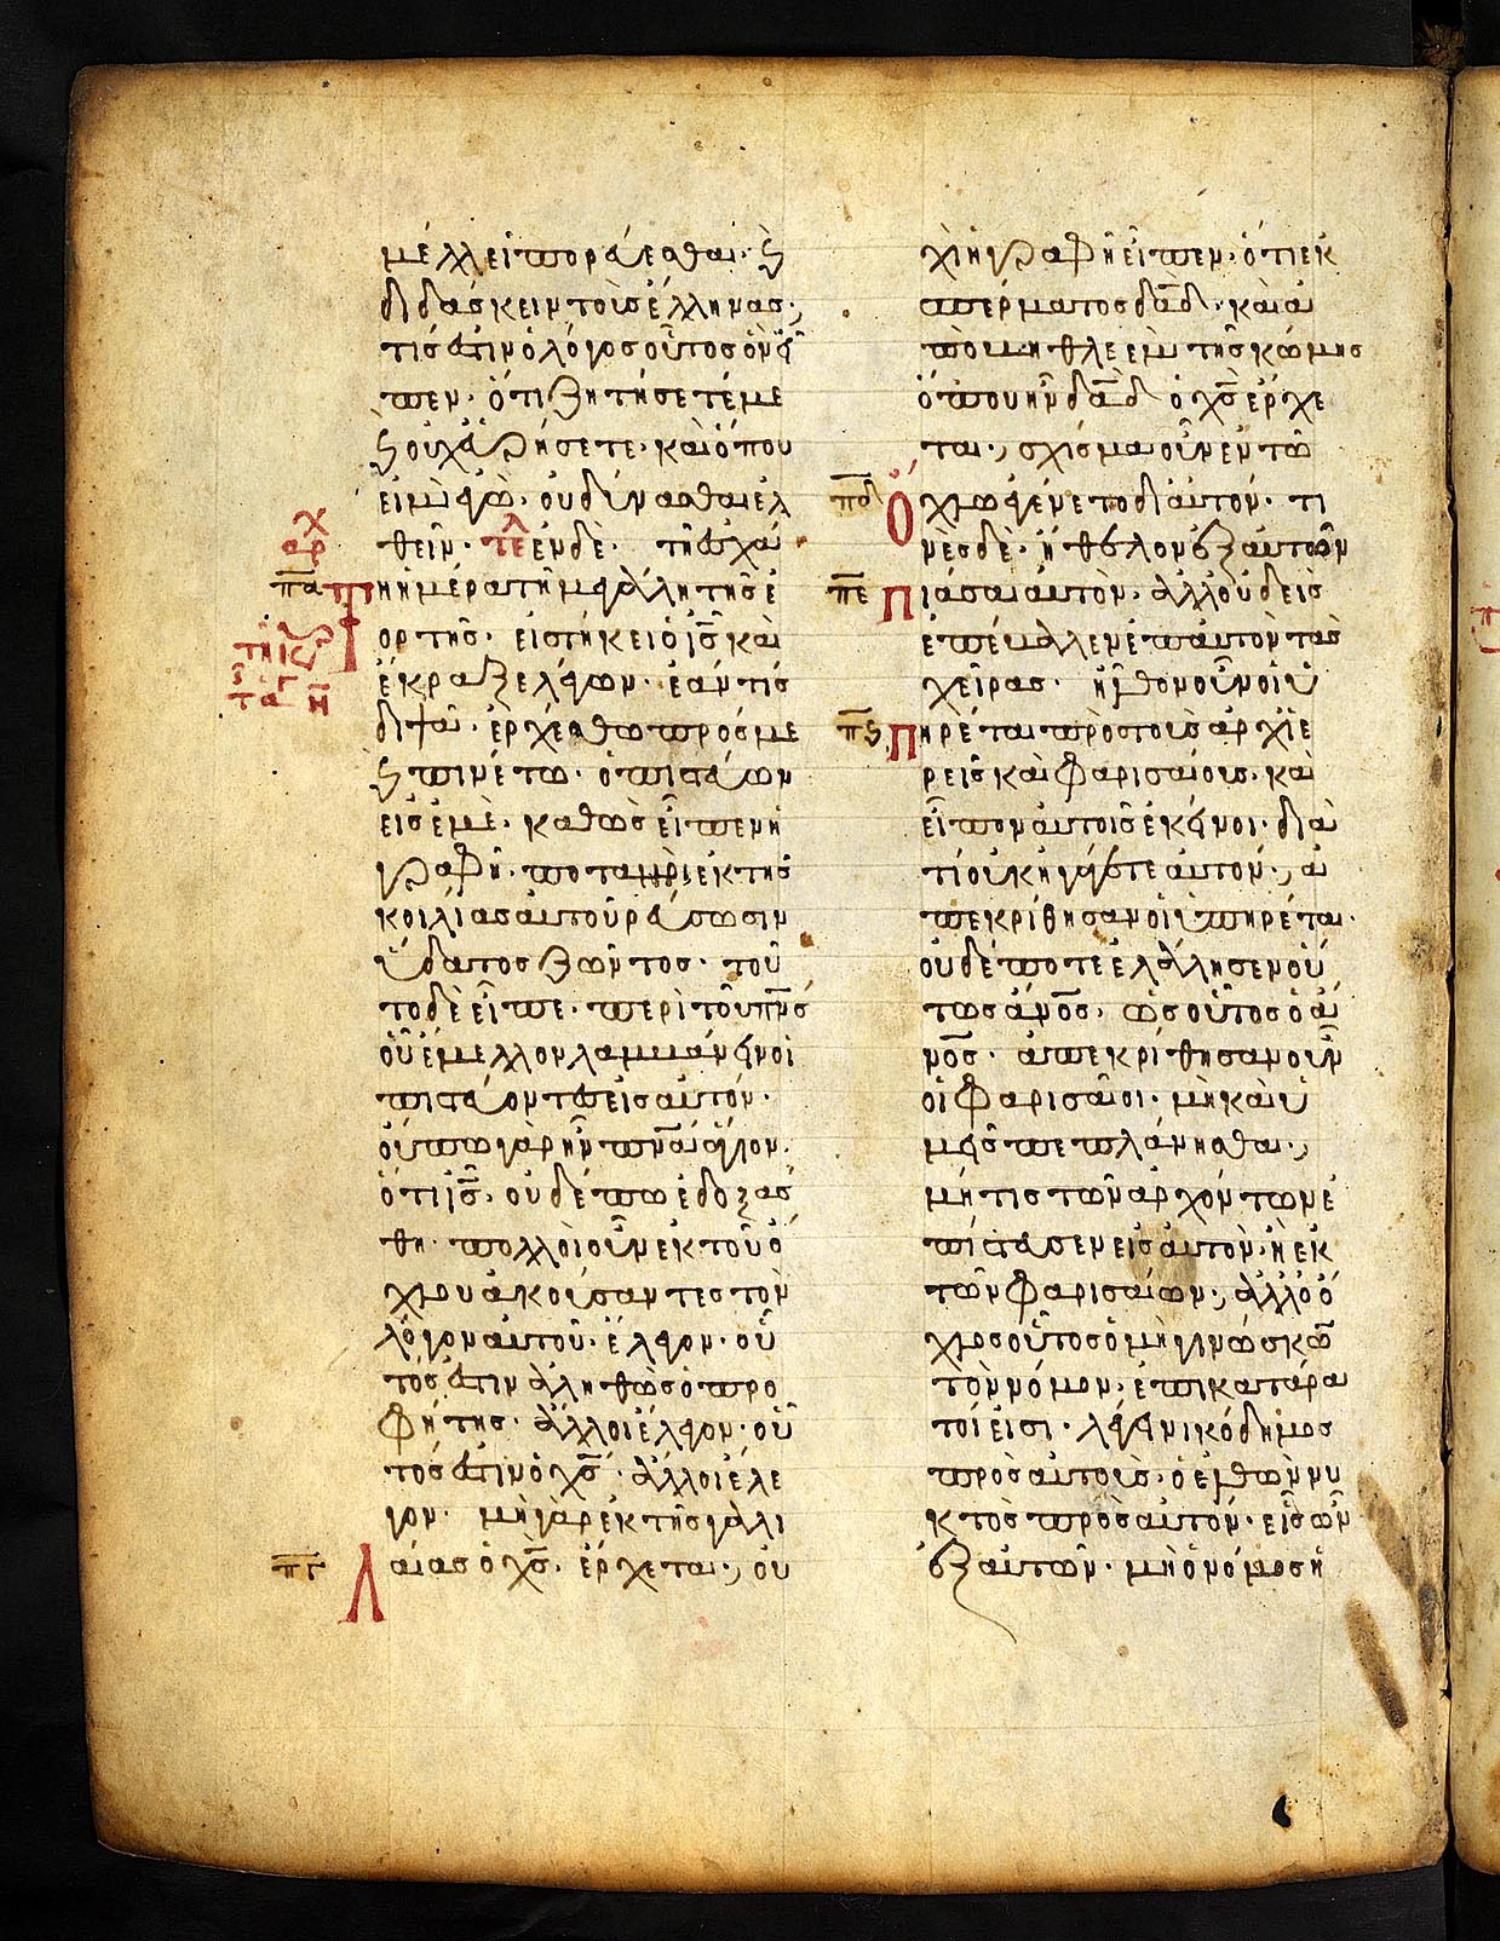 μέλλει πορεύεσθαι· ϗ
διδάσκειν τοὺς ἕλληνας·,
τίς ἐστιν ὁ λόγος οὗτος ὃν εἶ
πεν· ὅτι ζητήσετέ με
ϗ οὐχ εὑρήσετε· καὶ ὅπου
εἰμὶ ἐγὼ· οὐ δύνασθαι ἐλ
θεῖν· τε ἐν δὲ· τῆ ἐσχά
τη ἡμέρα τῆ μεγάλη τῆς ἑ
ορτῆς· εἱστήκει ὁ ι̅ς̅ καὶ
ἔκραξε λέγων· ἐάν τις
διψᾶ· ἐρχέσθω πρός με
ϗ πινέτω· ὁ πιστεύων
εἰς ἐμὲ· καθὼς εἶπεν ἡ
γραφὴ· ποταμοὶ ἐκ τῆς
κοιλίας αὐτοῦ ῥεύσωσιν
ὕδατος ζῶντος· τοῦ
το δὲ εἶπε· περὶ τοῦ π̅ν̅ς̅
οὗ ἔμελλον λαμβάνειν οἱ
πιστεύοντες εἰς αὐτόν·
οὔπω γὰρ ἦν π̅ν̅α̅ ἅγιον·
ὅτι ι̅ς̅· οὐδέπω ἐδοξάσ
θη· πολλοὶ οὖν ἐκ τοῦ ὄ
χλου ἀκούσαντες τὸν
λόγον αὐτοῦ· ἔλεγον· οὗ
τός ἐστιν ἀληθῶς ὁ προ
φήτης· ἄλλοι ἔλεγον· οὗ
τός ἐστιν ὁ χ̅ς̅· ἄλλοι ἔλε
γον· μὴ γὰρ ἐκ τῆς γαλι
π̅γ̅ λαίας ὁ χ̅ς̅· ἔρχεται·, οὐ
χὶ ἡ γραφὴ εἶπεν· ὅτι ἐκ
σπέρματος δ̅α̅δ̅· καὶ ἀ
πὸ βηθλεὲμ τῆς κώμης
ὅπου ἦν δ̅α̅δ̅ ὁ χ̅ς̅ ἔρχε
ται·, σχίσμα οὖν ἐν τῶ
π̅δ̅ ὄχλω ἐγένετο δι αὐτόν· τι
νὲς δὲ· ἤθελον ἐξ αὐτῶν
π̅ε̅ πιάσαι αὐτὸν· ἀλλ οὐδεὶς
ἐπέβαλλεν ἐπ αὐτὸν τὰς
χεῖρας· ἦλθον οὖν οἱ ὑ
π̅ϛ̅ πηρέται πρὸς τοὺς ἀρχιε
ρεῖς καὶ φαρισαίους· καὶ
εἶπον αὐτοῖς ἐκεῖνοι· διὰ
τί οὐκ ἠγάγετε αὐτόν·, ἀ
πεκρίθησαν οἱ ὑπηρέται·
οὐδέποτε ἐλάλησεν οὕ
τως ἄν̅ο̅ς̅· ὡς οὗτος ὁ ἄ
ν̅ο̅ς̅· ἀπεκρίθησαν οὖν
οἱ φαρισαῖοι· μὴ καὶ ὑ
μεῖς πεπλάνησθαι·,
μή τις τῶν ἀρχόντων ἐ
πίστευσεν εἰς αὐτὸν· ἢ ἐκ
τῶν φαρισαίων·, ἀλλ ὁ ὄ
χλος οὗτος ὁ μὴ γινώσκω̅
τὸν νόμον· ἐπικατάρα
τοί εἰσι· λέγει νικόδημος
πρὸς αὐτοὺς· ὁ ἐλθὼν νυ
κτὸς πρὸς αὐτόν· εἷς ὢν
ἐξ αὐτῶν· μὴ ὁ νόμος ἡ